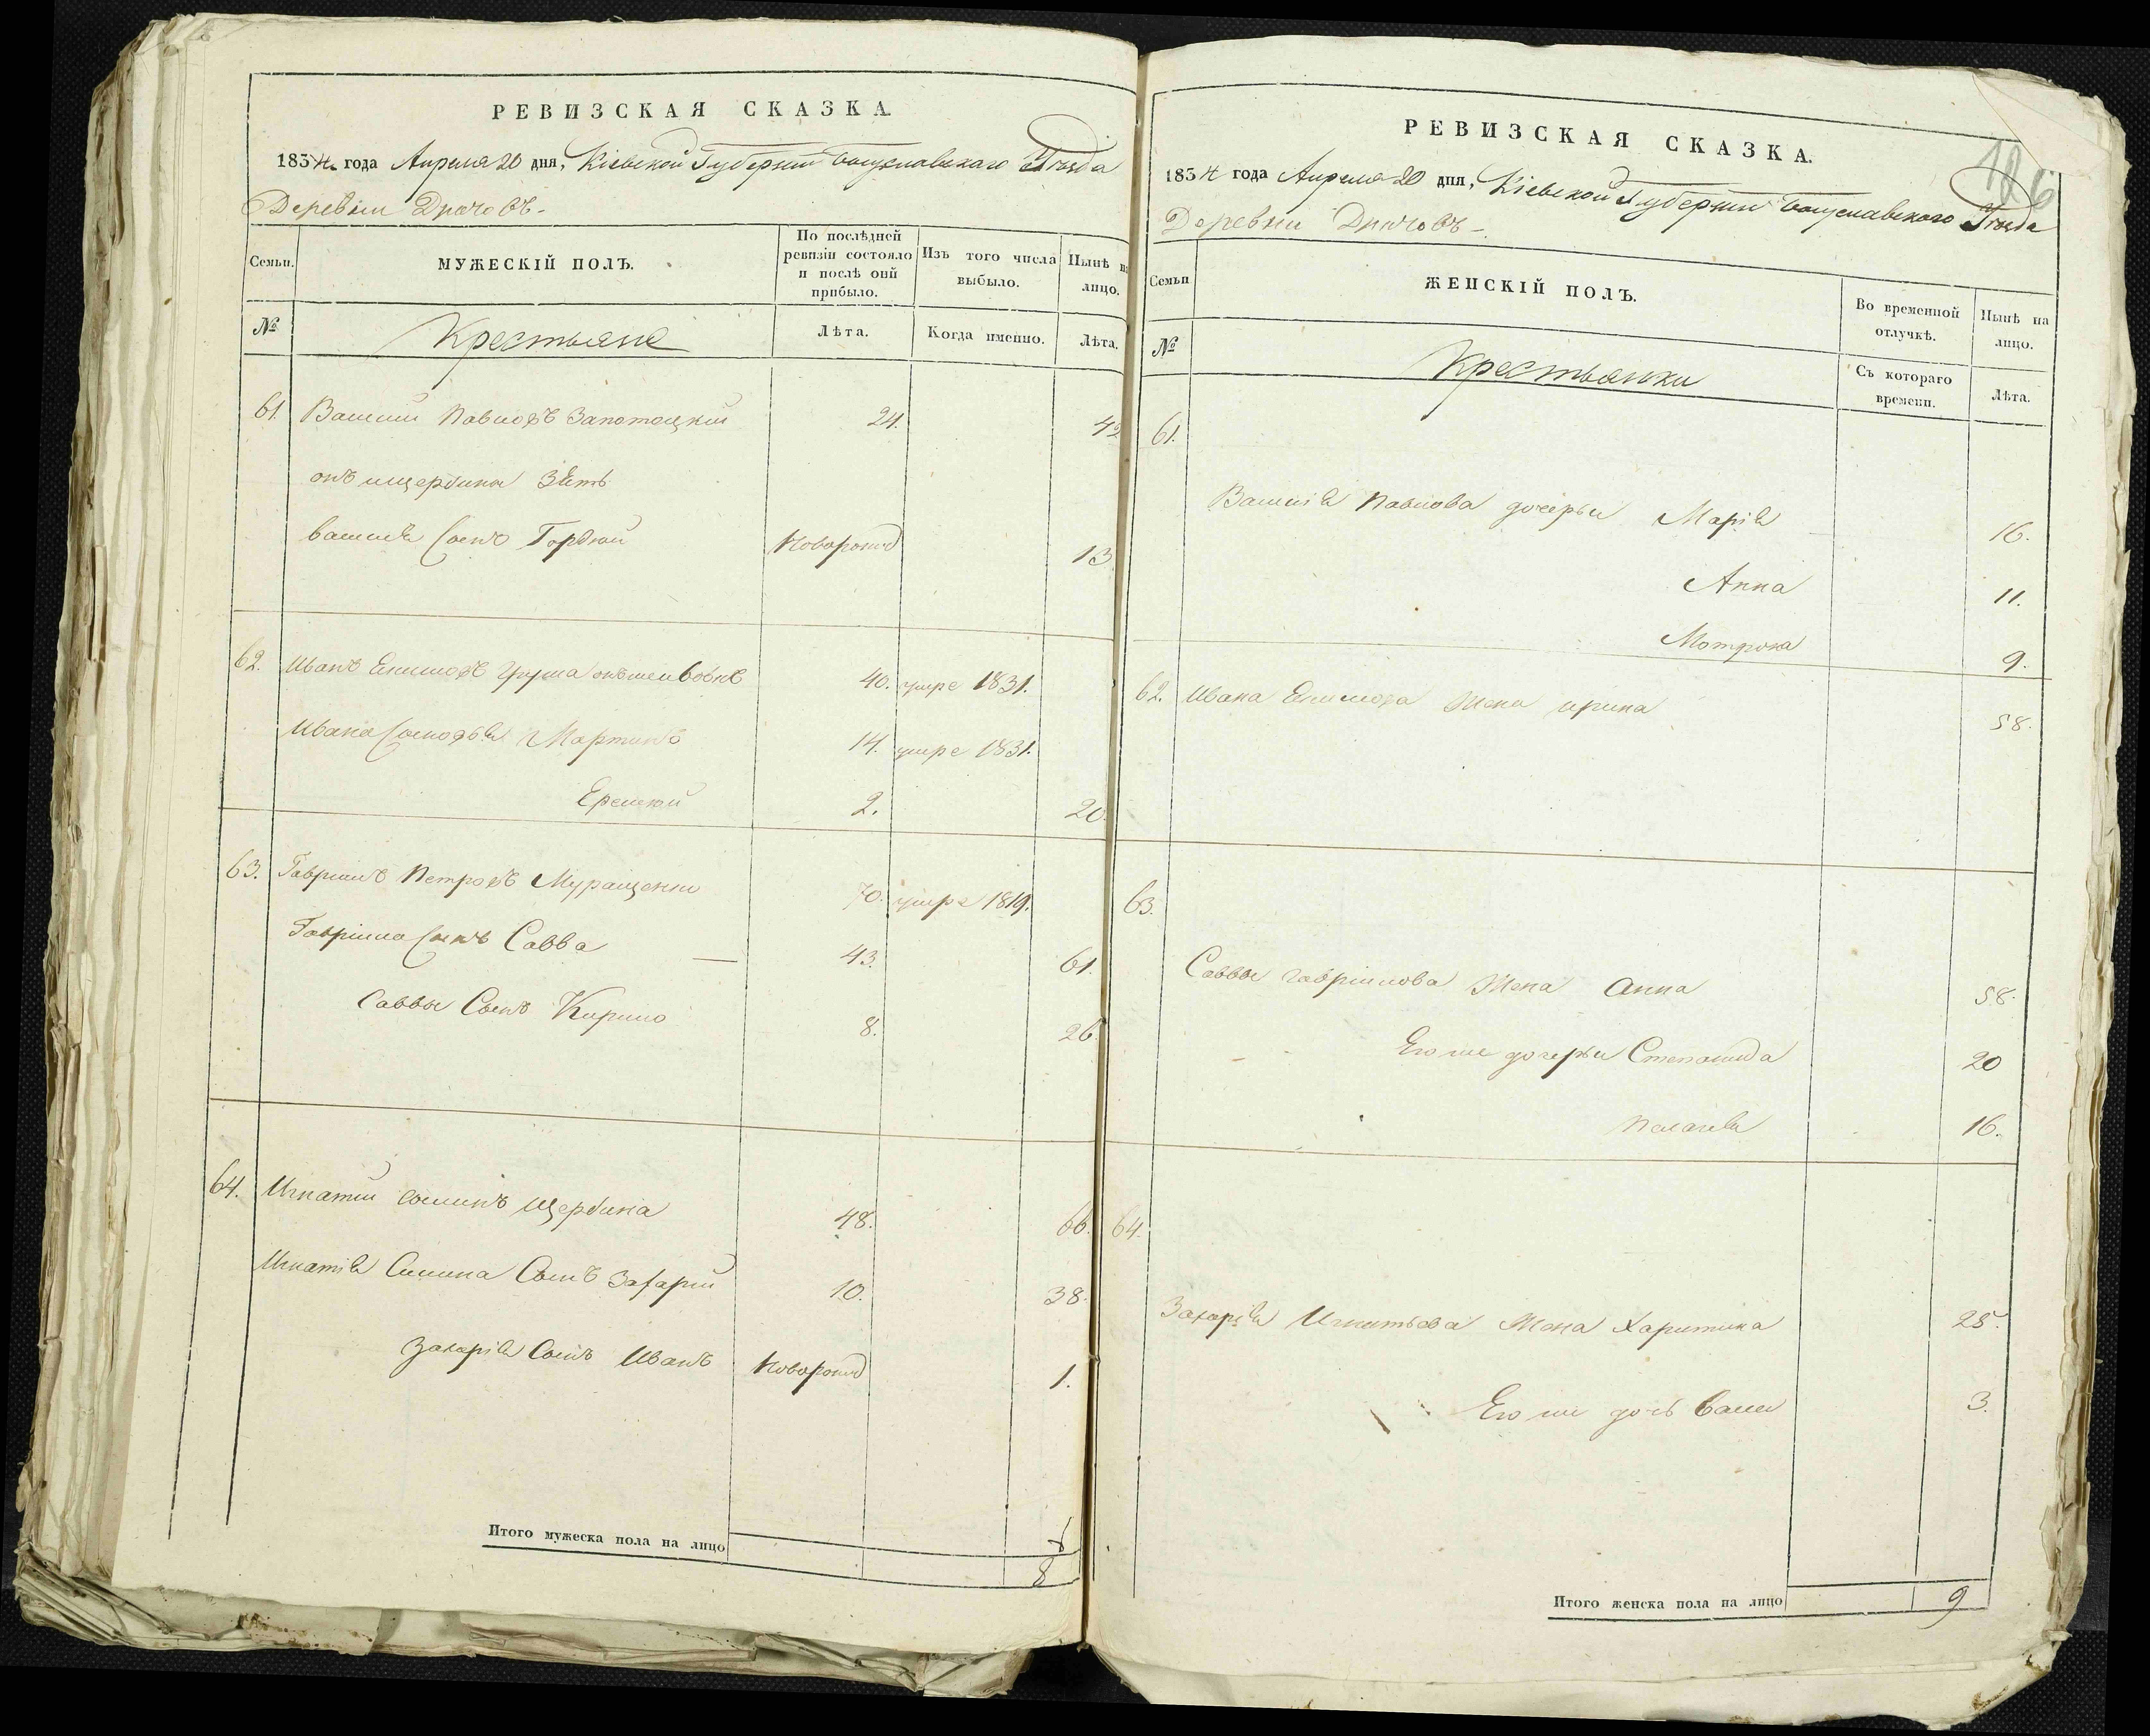 РЕВИЗСКАЯ СКАЗКА.
1834 года Апреля 20 дня, Кіевской Губерніи Богуславскаго Уѣзда
Деревни
Семьи.
МУЖЕСКІЙ ПОЛЪ.
По послѣдней ревизіи состояло и послѣ оній прибыло.
Изъ того числа выбыло.
Нынѣ на лицо.
№
Крестьяне
Лѣта.
Когда именно.
Лѣта.
61. Василий Павловъ Запотоцкий 24. 42
онъ щербины зять
Василія Сынъ Гордѣй Новорожд 13
62. Иванъ Екимовъ Груша 40. умре 1831.
Ивана Сыновья Мартинъ 14. умре 1831.
Еремѣй 2. 20.
63. Гаврiилъ Петровъ Муращенко 70. умре 1819.
Гавріила Сынъ Савва 43. 61.
Саввы Сынъ Кирило 8. 26.
64. Игнатий Щербина 48. 66.
Игнатія Сынъ Захарий 10. 38.
Захарія Сынъ Иванъ Новорожд 1.
Итого мужеска пола на лицо
8
РЕВИЗСКАЯ СКАЗКА.
1834 года Апреля 20 дня, Кіевской Губерніи Богуславского Уѣзда
Деревни
Семьи
ЖЕНСКІЙ ПОЛЪ.
Во временной отлучкѣ.
Нынѣ на лицо.
№
Крестьянки
Съ котораго времени.
Лѣта.
61.
Василія Павлова дочерьи Марія 16.
Анна 11.
Мотрона 9.
62. Ивана Екимова Жена ирина 58.
63.
Саввы гавріилова Жена Анна 58.
Его же дочерьи Степанида 20
Пелагея 16.
64.
Захарія Игнатьева Жена Харитина 25.
Его же дочь 3.
Итого женска пола на лицо 9